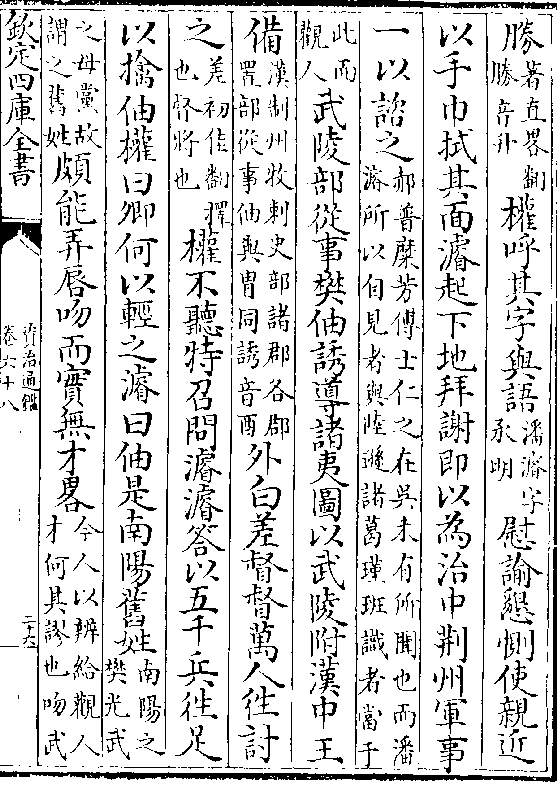 勝著直畧翻勝音升權呼其字與語潘濬字承明慰諭懇惻使親近
以手巾拭其面濬起下地拜謝即以為治中荆州軍事
一以諮之郝普糜芳傅士仁之在吳未有所聞也而潘濬所以自見者與陸遜諸葛瑾班識者當于
此而觀人武陵部從事樊伷誘導諸夷圖以武陵附漢中王
備漢制州牧刺史部諸郡各郡置部從事伷與胄同誘音酉外白差督督萬人往討
之差初佳翻擇也督將也權不聽特召問濬濬答以五千兵往足
以擒伷權曰卿何以輕之濬曰伷是南陽舊姓南陽之樊光武
之母黨故謂之舊姓頗能弄唇吻而實無才畧今人以辨給觀人才何其謬也吻武
欽定四庫全書
資治通鑑
卷六十八
二十六